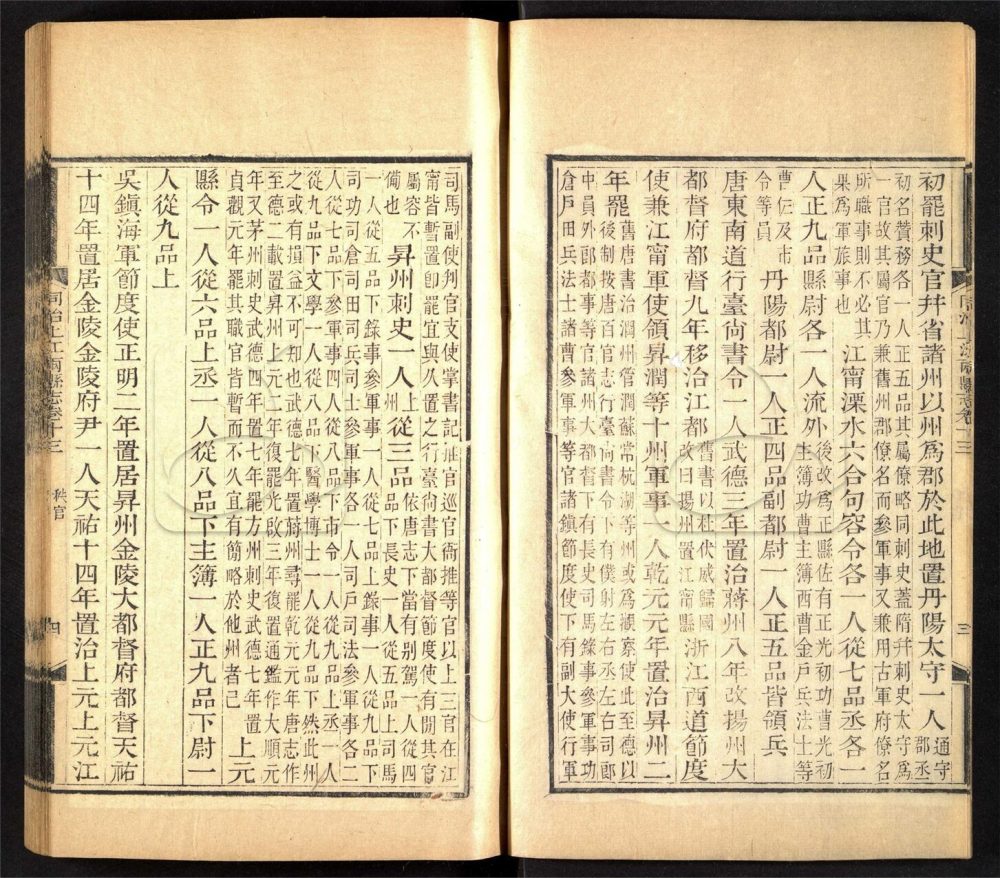 初罷刺史官幷省諸州以州爲郡於此地置丹陽太守一人
通守
郡丞
初名贊務各一人正五品其屬僚略同刺史蓋隋幷刺史太守爲
一官故其屬官乃兼舊州郡僚名而參軍事又兼用古軍府僚名
所職事則不必其
果爲軍旅事也
江甯溧水六合句容令各一人從七品丞各一
人正九品縣尉各一人流外
後改爲正縣佐有正光初功曹光初
主簿功曹主簿西曹金戶兵法士等
曹仁及市
令等員
丹陽都尉一人正四品副都尉一人正五品皆領兵
唐東南道行臺尙書令一人武德三年置治蔣州八年改揚州大
都督府都督九年移治江都
舊書以杜伏威歸國
改曰揚州置江甯縣
浙江西道節度
使兼江甯軍使領昇潤等十州軍事一人乾元元年置治昇州二
年罷
舊唐書治潤州管潤蘇常杭湖等州或爲觀察使此至德以
後制按唐百官志行臺尙書令下有僕射左右丞左右司郎
中員外郎都事等官諸州大都督下有長史司馬錄事參軍事功
倉戶田兵法士諸曹參軍事等官諸鎮節度使下有副大使行軍
三
司馬副使判官支使掌書記推官巡官衙推等官以上三官在江
甯皆暫置卽罷宜與久置之行臺尙書大都督節度使有閒其官
屬容不
備也
昇州刺史一人上從三品
依唐志下當有别駕一人從四
品下長史一人從五品上司馬
一人從五品下錄事參軍事一人從七品上錄事一人從九品下
司功司倉司田司兵司士參軍事各一人司戶司法參軍事各二
人從七品下參軍事四人從八品下市令一人從九品上丞一人
從九品下文學一人從八品下醫學博士一人從九品下然此州
之或有損益不可知也武德七年置蔣州尋罷乾元元年唐志作
至德二載置昇州上元二年復罷光啟三年復置通鑑作大順元
年又茅州刺史武德四年置七年罷方州刺史武德七年置
貞觀元年罷其職官皆暫而不久宜有簡略於他州者已
上元
縣令一人從六品上丞一人從八品下主簿一人正九品下尉一
人從九品上
吳鎮海軍節度使正明二年置居昇州金陵大都督府都督天祐
十四年置居金陵金陵府尹一人天祐十四年置治上元上元江
同治上江兩縣志卷十三
秩官
四